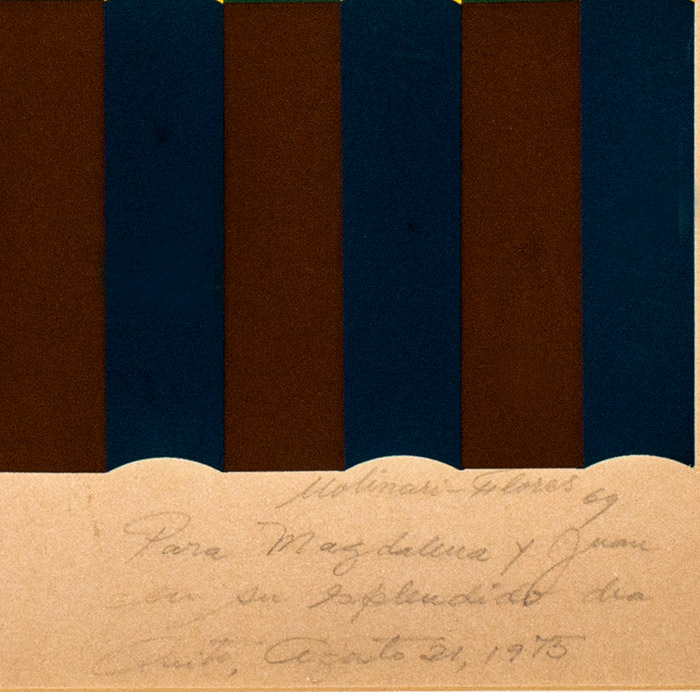 Molinari-Flores 69
Para Magdalena y Juan
en su esplendido dia
Quito, Agosto 21, 1975